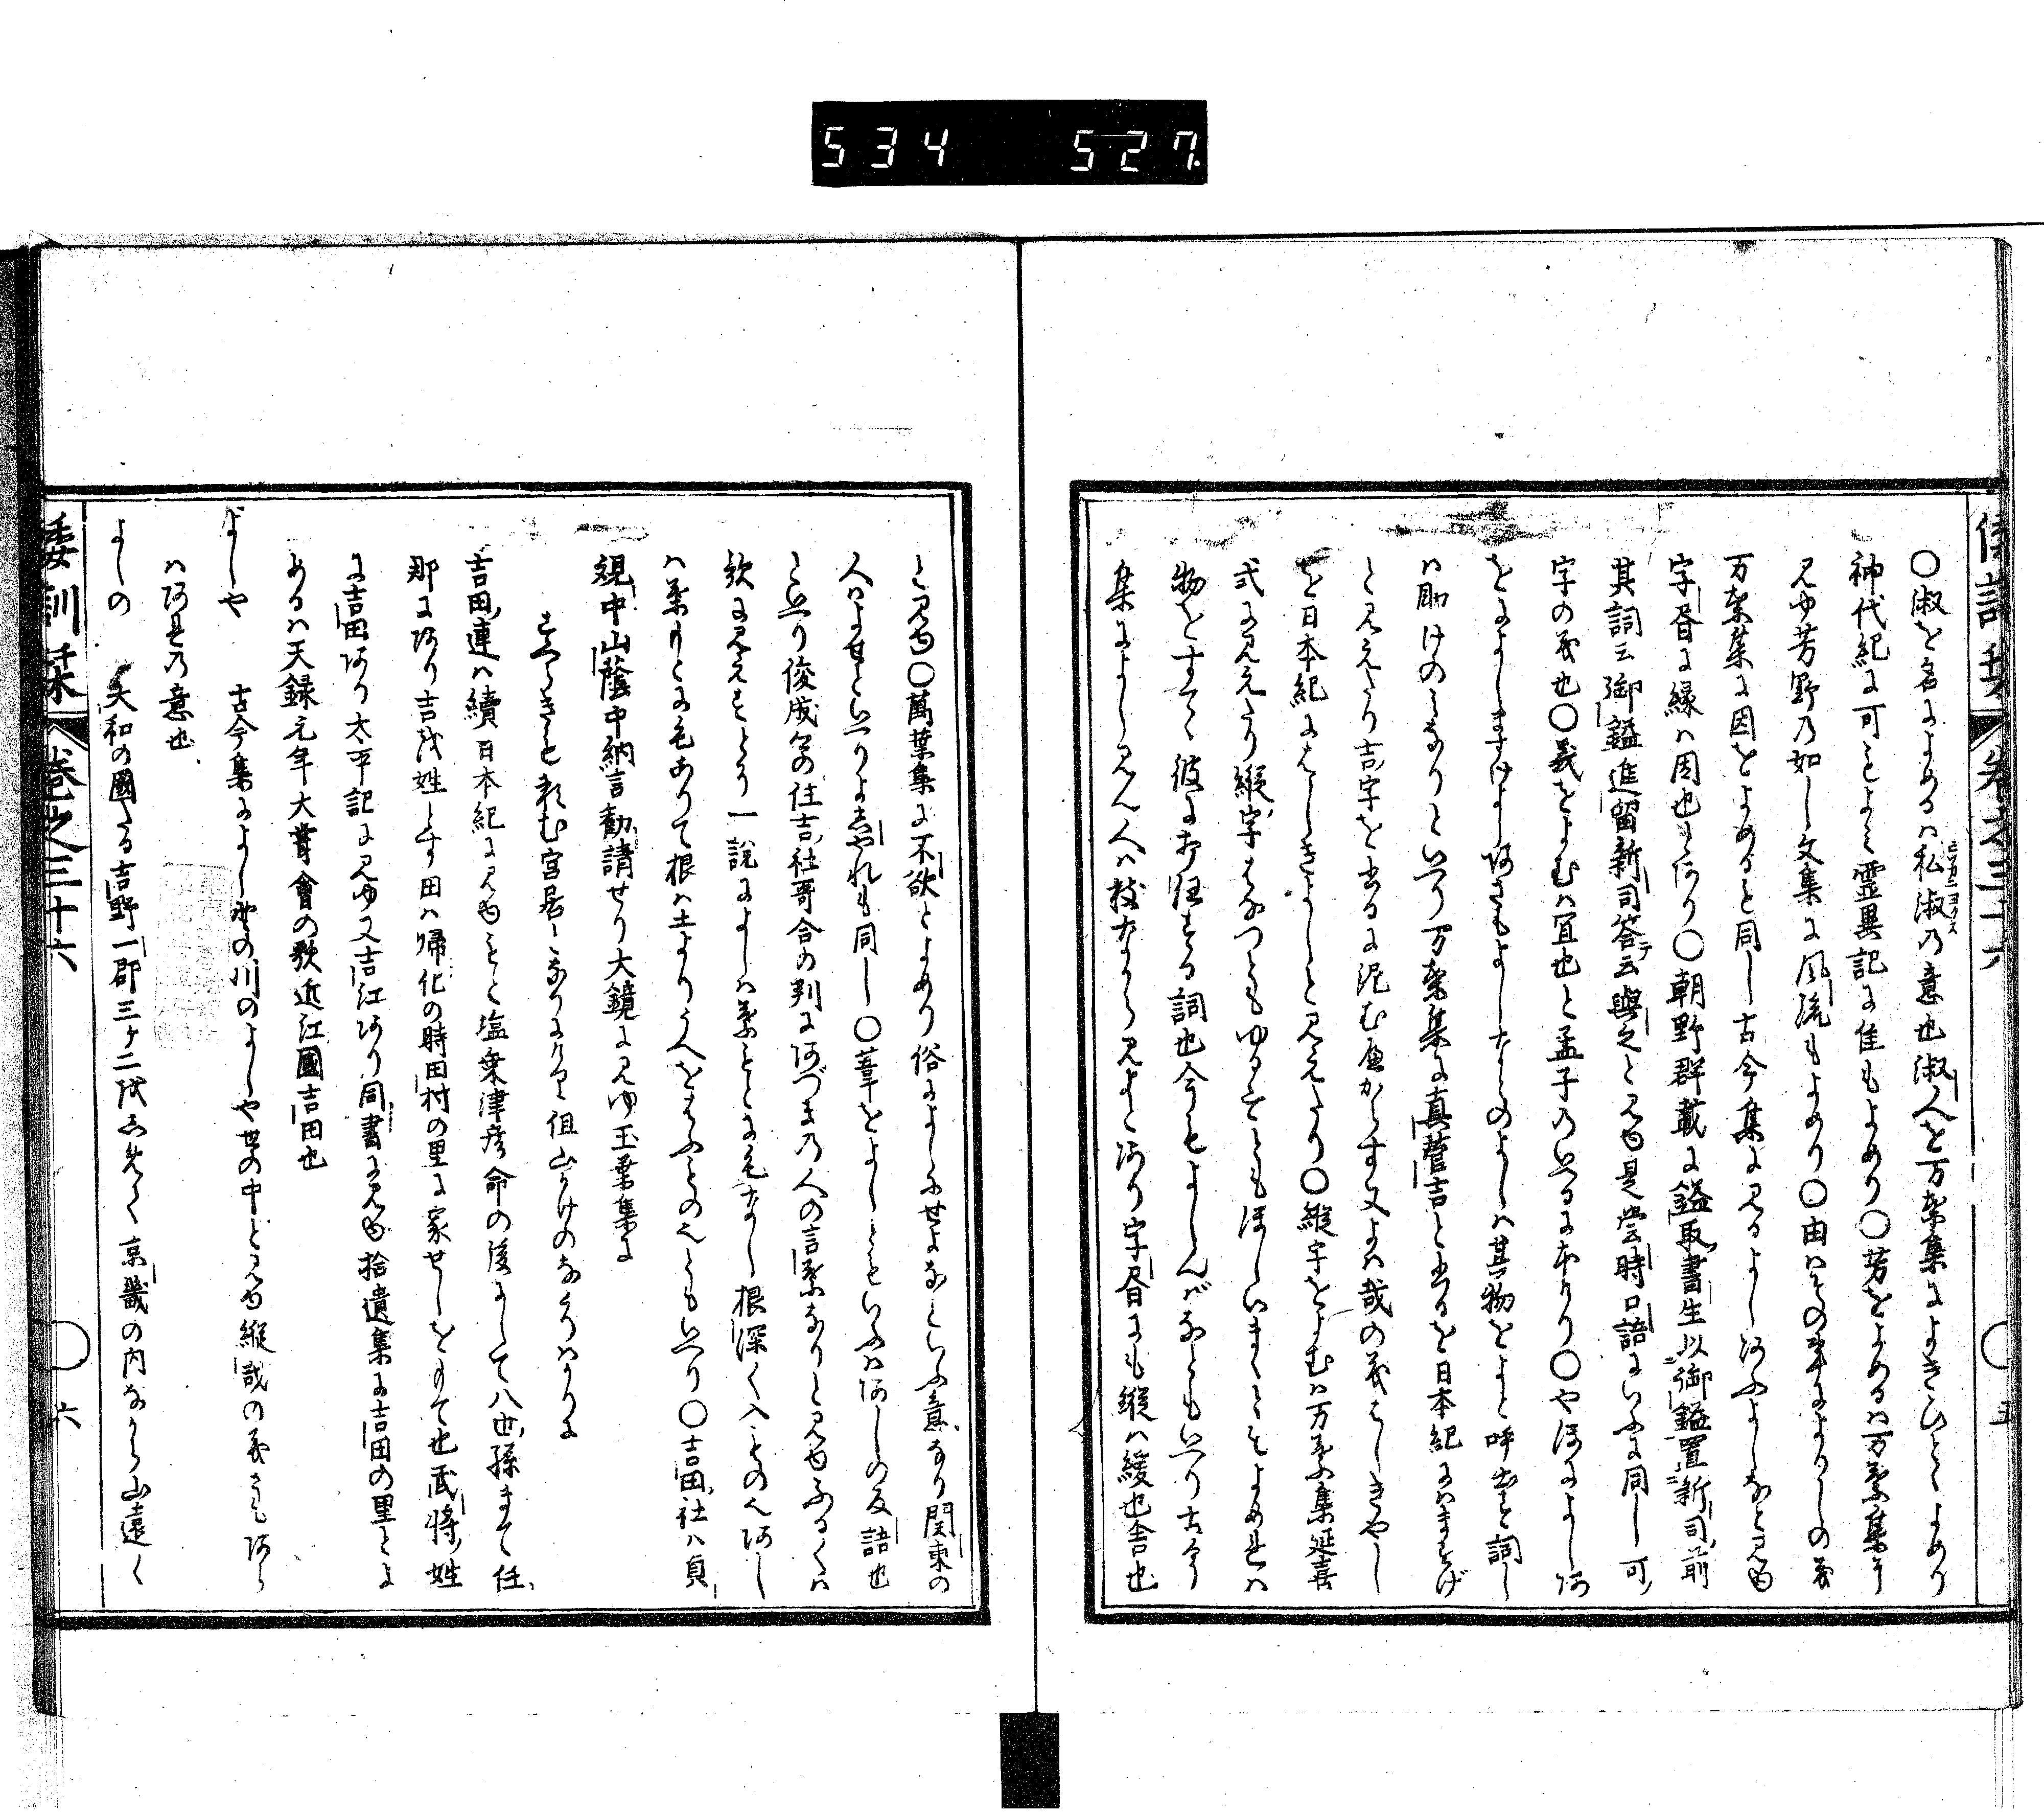 534 527
〇淑を名によめるハ私淑の意也淑人を万葉集によきひとゝよめり
ヒソカニヨクス
神代紀に可をよミ霊異記に佳もよめり〇芳をよめるハ万葉集に
見ゆ芳野の如し文集に風流もよめり〇由ハその事によりしの義
万葉集に因をよめると同し古今集に見るよしあふよしなと見ゆ
字書に縁ハ因也とあり〇朝野群載に鎰取書生以御鎰置新司前
其詞云御鎰進留新司答云與之と見ゆ是当時口語にいふに同し可
字の義也〇義をよむハ宜也と孟子のいへるに本けり〇やほによしあ
をによしますけよしあさもよしなとのよしハ其物をよしと呼出す詞し
ハ助けのミなりといへり万葉集に真菅吉と書るを日本紀にハますげ
と見えたり吉字を書るに泥むへからす又よハ哉の義はしきやし
を日本紀にはしきよしと見えたり〇縦字をよむハ万葉集延喜
式に見えたり縦字はなつともゆるすともほしいまゝともよめれは
物をすてゝ彼に打任する詞也今もよしんバなともいへり古今
集によし見ん人ハ枝なから見よとあり字書にも縦ハ緩也舎也
と見ゆ〇萬葉集に不欲とよめり俗によしにせよなといふ意なり関東の
人はよせといへりよしやれも同し〇葦をよしともいふハあしの反語也
といへり俊成卿の住吉社哥合の判にあづまの人の言葉なりと見ゆふるくハ
歌に見えすとそ一説によしハ葉もとに毛なし根深く入ものへあし
ハ葉もとに毛ありて根ハ土よりうへをはふものへともいへり〇吉田社ハ貞
観中山蔭中納言勧請せり大鏡に見ゆ玉葉集に
すへらきも頼む宮居となりにけり但山かけのなかりせハ
吉田連ハ續日本紀に見ゆもと塩乗津彦命の後にして八世孫まて任
那にあり吉ハ姓とす田ハ帰化の時田村の里に家せしをもて也武将姓
に吉田あり太平記に見ゆ又吉江あり同書に見ゆ拾遺集に吉田の里とよ
めるハ天録元年大嘗會の歌近江國吉田也
よしや　古今集によしのゝ川のよしや世の中と見ゆ縦哉の義さもあら
ハあれの意也
よしの　大和の國なる吉野一郡三ヶ二ほとしめて京畿の内なから山遠く
倭訓栞　巻之三十六　五
倭訓栞　巻之三十六　六